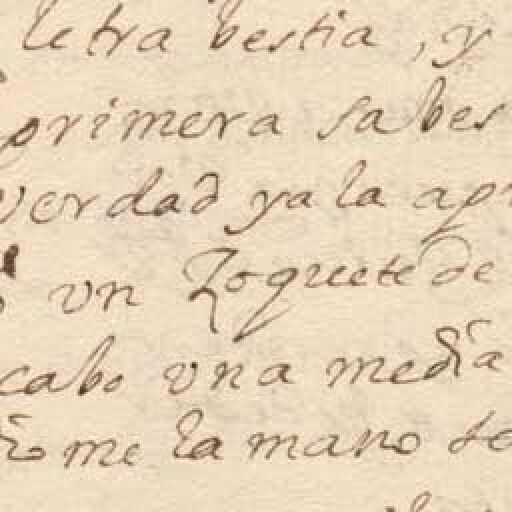 letra bestia, y
primera sabes
verdad ya la apr
un Zoquete de
cabo una media
me la mano te